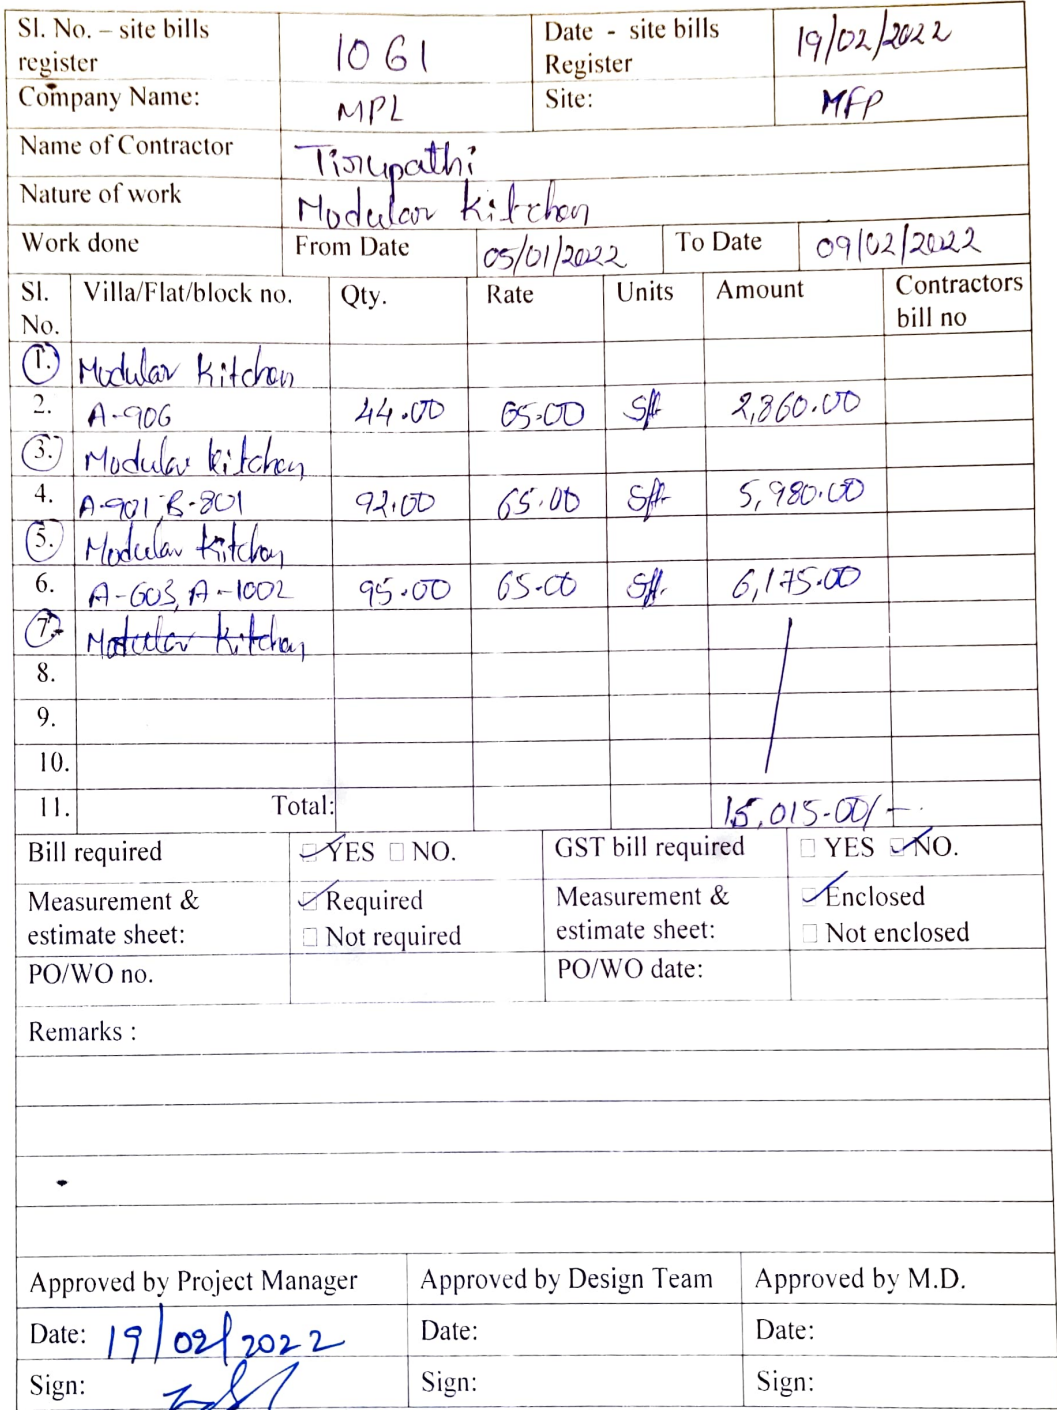 Sl. No. – site bills register 1061 Date - site bills Register 19/02/2022
Company Name: MPL Site: MFP
Name of Contractor Tirupathi
Nature of work Modular Kitchen
Work done From Date 05/01/2022 To Date 09/02/2022
Sl. No. Villa/Flat/block no. Qty. Rate Units Amount Contractors bill no
1. Modular Kitchen
2. A-906 44.00 65.00 Sft. 2,860.00
3. Modular Kitchen
4. A-901, B-801 92.00 65.00 Sft. 5,980.00
5. Modular Kitchen
6. A-603, A-1002 95.00 65.00 Sft. 6,175.00
7. Modular Kitchen
8.
9.
10.
11. Total: 15,015.00/-
Bill required YES NO. GST bill required YES NO.
Measurement & estimate sheet: Required Measurement & estimate sheet: Enclosed
Not required Not enclosed
PO/WO no. PO/WO date:
Remarks :
Approved by Project Manager Approved by Design Team Approved by M.D.
Date: 19/02/2022 Date: Date:
Sign: Sign: Sign: